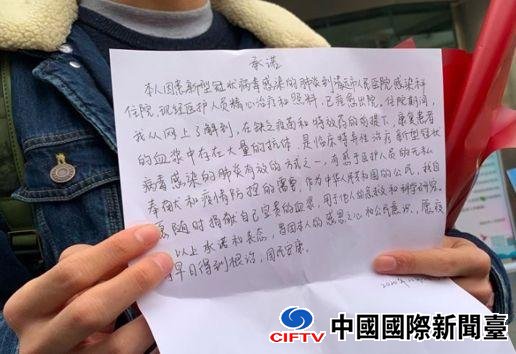 承诺
本人因患新型冠状病毒感染的肺炎到清远市人民医院感染科
住院，现经医护人员精心治疗和照料，已痊愈出院，住院期间，
我从网上了解到，在缺乏疫苗和特效药的前提下，康复患者
的血浆中存在大量的抗体，是临床特异性治疗新型冠状
病毒感染的肺炎有效的方式之一，有感于医护人员的无私
奉献和疫情防控的需要，作为中华人民共和国的公民，我自
愿随时捐献自己宝贵的血浆，用于他人的救治和科学研究。
以上承诺和表态，是因本人的感恩之心和公民意识，愿疫
早日得到根治，国民安康。
2020年
CIFTV
中國國際新聞臺